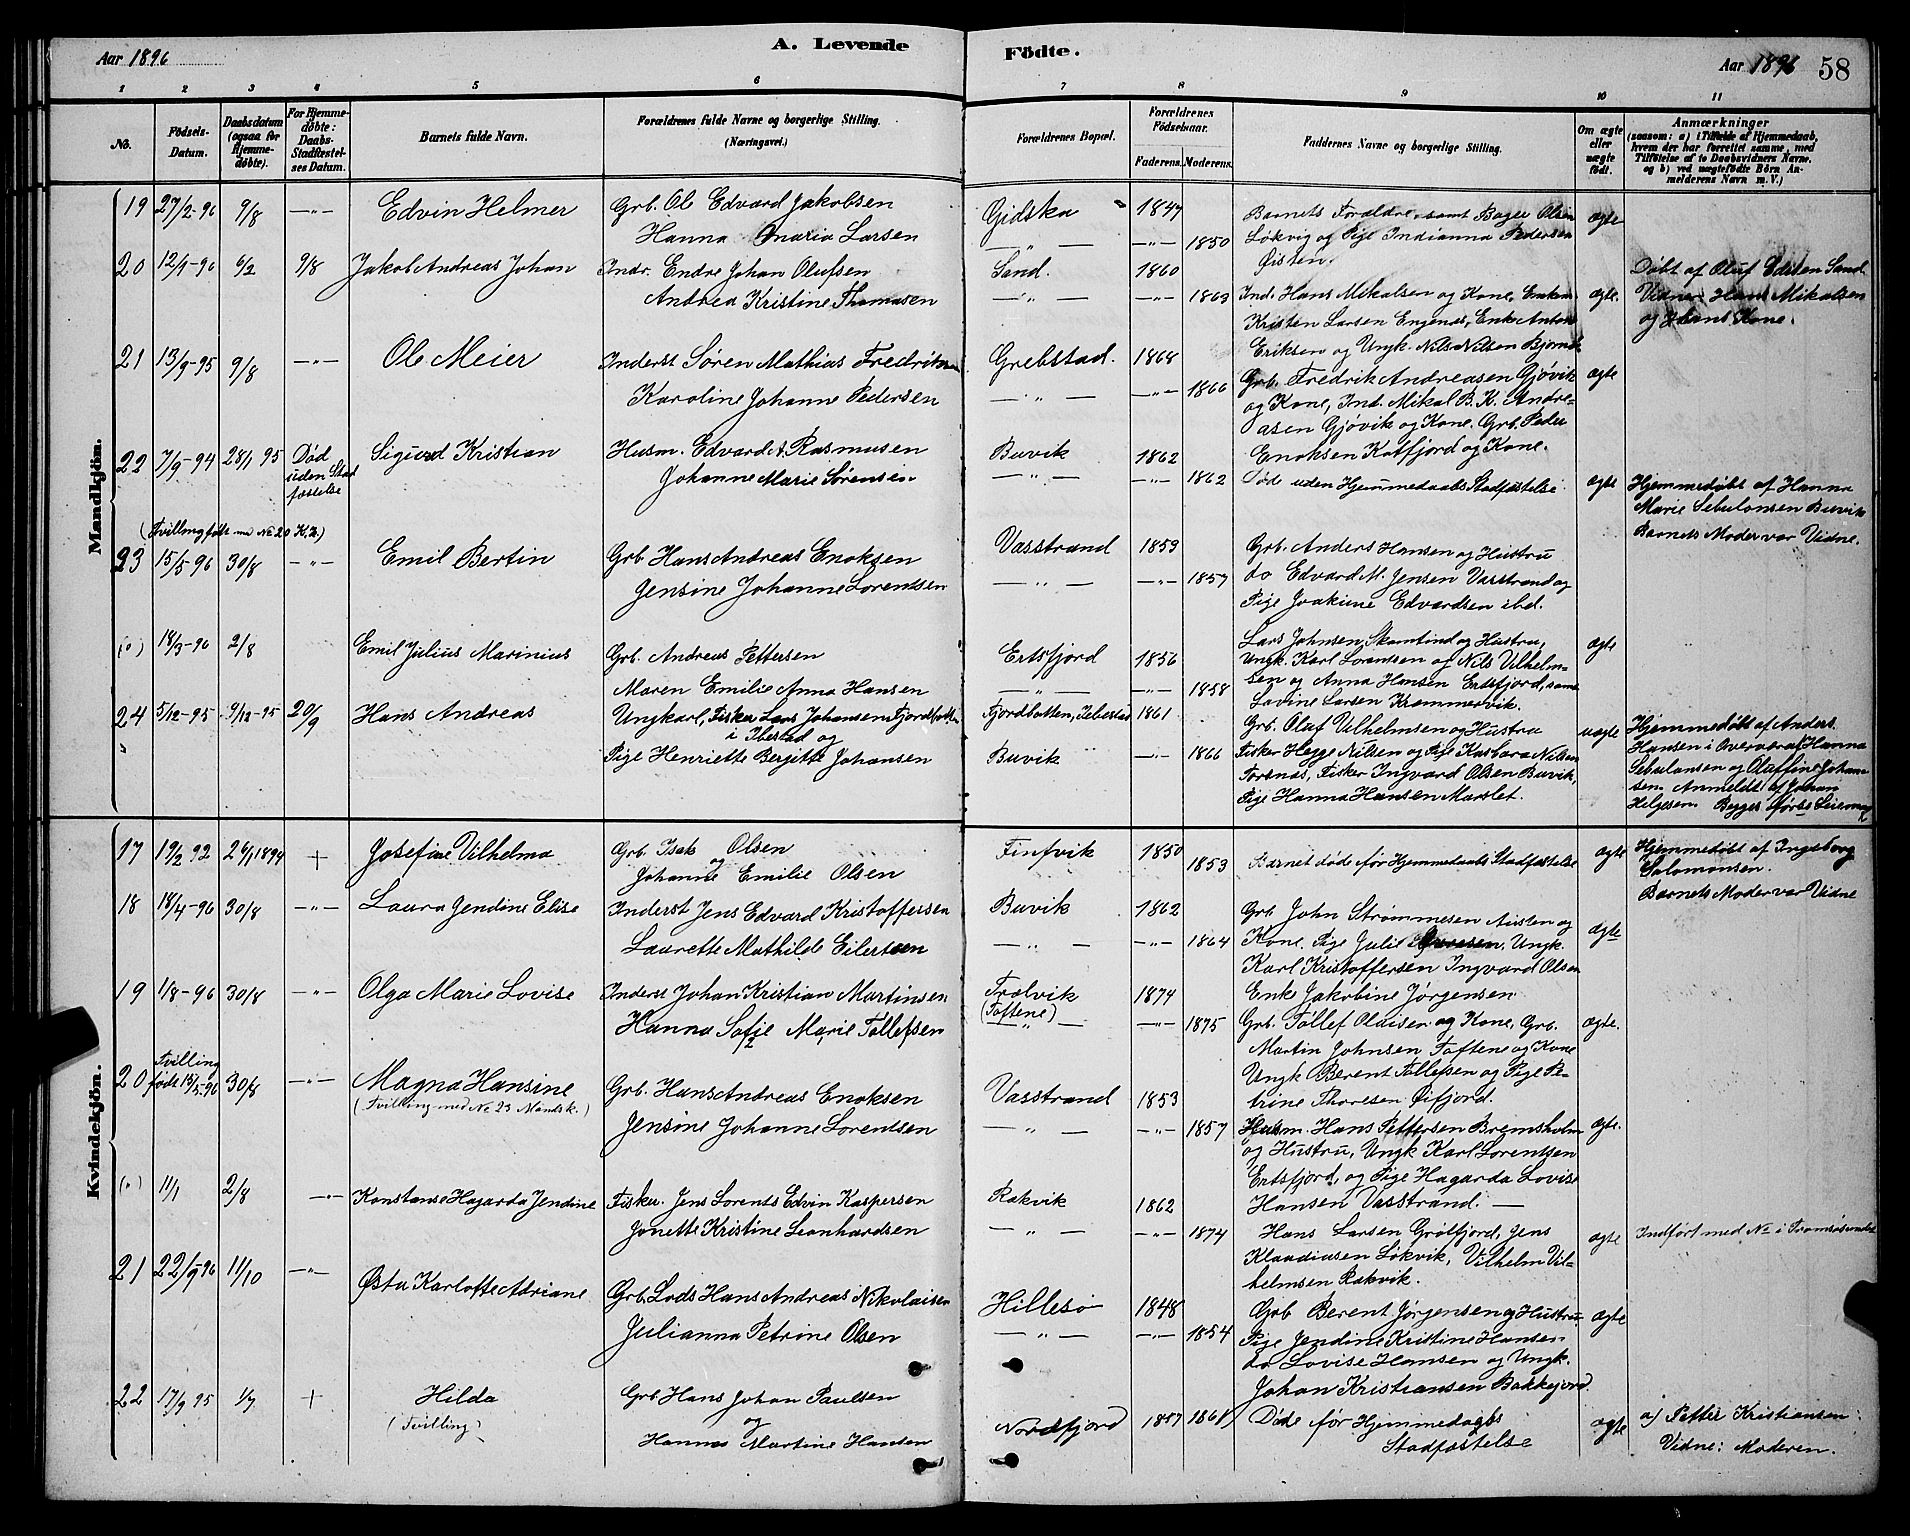 Aar 1896
A. Levende Födte.
Aar 1896 58
1 2 3 4 5 6 7 8 9 10 11
No.
Födsels-Datum.
Daabsdatum (ogsaa for Hjemme-døbte).
For Hjemme-døbte: Daabs-Stadfæstel-ses Datum.
Barnets fulde Navn.
Forældrenes fulde Navne og borgerlige Stilling. (Næringsvei.)
Forældrenes Bopæl.
Forældrenes Födselsaar.
Faderens. Moderens.
Faddernes Navne og borgerlige Stilling.
Om ægte eller uægte født.
Anmærkninger (saasom: a) i Tilfælde af Hjemmedaab, hvem der har forrettet samme, med Tilföielse af to Daabsvidners Navne, og b) ved uægtefödte Börn An-melderens Navn m. V.)
Mandkjön.
19 27/2-96 9/8 —"— Edvin Helmer Grb. Ole Edvard Jakobsen Gidska 1847 Barnets Forældre, samt Bager Olsen ægte
Hanna Maria Larsen —"— —"— 1850 Løkvig og Pige Indianna Pedersen
Øisten.
20 12/1-96 6/2 9/8 Jakob Andreas Johan Indr. Endre Johan Olufsen Sand. 1860 Døbt af Oluf Edisen Sand.
Andrea Kristine Thomasen —"— —"— 1863 Ind. Hans Mikalsen og Kone, Enkem. ægte. Vidner: Hans Mikalsen
Kristen Larsen Engenæs, Enke Anton og Hans Kone.
21 13/9-95 9/8 —"— Ole Meier Inderst Søren Mathias Fredriksen Grebstad. 1868 Eriksen og Ungk. Nils Nilsen
Karoline Johanne Pedersen —"— —"— 1866 Grb. Fredrik Andreasen Gjøvik ægte
og Kone, Ind. Mikal B. K. Andre-
asen Gjøvik og Kone. Grb. Peder
22 7/9-94 28/1 95 Død uden Stadfæstelse Sigurd Kristian Husm. Edvard A. Rasmusen Buvik 1862 Enoksen Katfjord og Kone.
Johanne Marie Sørensen —"— —"— 1862 Døde uden Hjemmedaabs Stadfæstelse ægte Hjemmedøbt af Hanna
Marie Sebulonsen Buvik
Barnets Moder var Vidne.
(Tvilling født med No 20 K.k.)
23 15/5-96 30/8 —"— Emil Bertin Grb. Hans Andreas Enoksen Vasstrand 1853 Grb. Anders Hansen og Hustru
Jensine Johanne Lorentsen —"— —"— 1857 do Edvard M. Jensen Vasstrand og
Pige Joakime Edvardsen ibd.
(0) 18/3-96 2/8 Emil Julius Marinius Grb. Andreas Pettersen Ertsfjord 1856 Lars Johnsen, Skamtind og Hustru, ægte
Maren Emilie Anna Hansen —"— —"— 1858 Ungk. Karl Lorentsen og Nils Vilhelm-
sen og Anna Hansen Ertsfjord, samt
Lovine Larsen Kræmmervik.
24 5/12-95 9/12-95 20/9 Hans Andreas Ungkarl, Fisker Lars Johansen Fjordbotten Fjordbotten, Ibestad 1861 Grb. Oluf Vilhelmsen og Hustru uægte Hjemmedøbt af Anders
i Ibestad og
Pige Henriette Bergitte Johansen Buvik —"— 1866 Fisker Hegge Nilsen og Pige Karbara Nilsen Hansen i Overvær af Hanna
Torenæs, Fisker Ingvard Olsen Buvik, Sebulonsen og Oluffine Johan-
Pige Hanna Hansen Marslet. sen. Anmeldt af Johan
Helgesen. Begges første Leiermaal
Kvindekjön.
17 19/2 92 26/1 1894 + Josefine Vilhelma Grb. Isak Olsen Finfvik 1850 Hjemmedøbt af Ingeborg
og
Johanne Emilie Olsen 1853 Barnet døde før Hjemmedaabs Stadfæstelse ægte Salomonsen.
Barnets Moder var Vidne
18 18/4-96 30/8 —"— Laura Jendine Elise Inderst Jens Edvard Kristoffersen Buvik 1862 Grb. John Strømmesen Austen og
Laurette Mathilde Eilertsen —"— —"— 1864 Kone. Pige Julie Ungk. ægte
Karl Kristoffersen Ingvard Olsen
19 1/8-96 30/8 —"— Olga Marie Lovise Inderst Johan Kristian Martinsen Trælvik (Toftene) 1874 Enke Jakobine Jørgensen
Hanna Sofie Marie Tollefsen —"— —"— 1875 Grb. Tollef Olaisen og Kone, Grb. ægte.
Martin Johnsen Toftene og Kone
Ungk Berent Tollefsen og Pige Pe-
trine Thoresen Øifjord.
20 Tvilling født 15/5-96 30/8 —"— Magna Hansine Grb. Hans Andreas Enoksen Vasstrand 1853
(Tvilling med No 23 Mandk.)
Jensine Johanne Lorentsen —"— —"— 1857 Husm. Hans Pettersen Bremsholm ægte.
og Hustru, Ungk Karl Lorentsen
Ertsfjord, og Pige Hagarda Lovise
(0) 11/1 2/8 —"— Konstanse Hagarda Jendine Fisker. Jens Lorents Edvin Kaspersen Rakvik 1862 Hansen Vasstrand. —
Jonette Kristine Leonhardsen —"— 1874 Hans Larsen Grøtfjord, Jens ægte Indført med No i Tromsøsundet
Klaudiusen Løkvik, Vilhelm Vil-
helmsen Rakvik.
21 22/9-96 11/10 —"— Østa Karlotte Adriane Grb. Lods Hans Andreas Nikolaisen Hillesø 1848 Grb Berent Jørgensen og Hustru ægte
Julianna Petrine Olsen —"— —"— 1854 Pige Jendine Kristine Hansen
do Lovise Hansen og Ungk.
Johan Kristiansen Bakkejord.
22 17/9 95 1/7 + Hilda Grb. Hans Johan Paulsen Nordfjord 1867 1861 Døde før Hjemmedaabs ægte a) Petter Kristiansen
(Tvilling) og Stadfæstelse Vidne: Moderen.
Hannas Martine Hansen